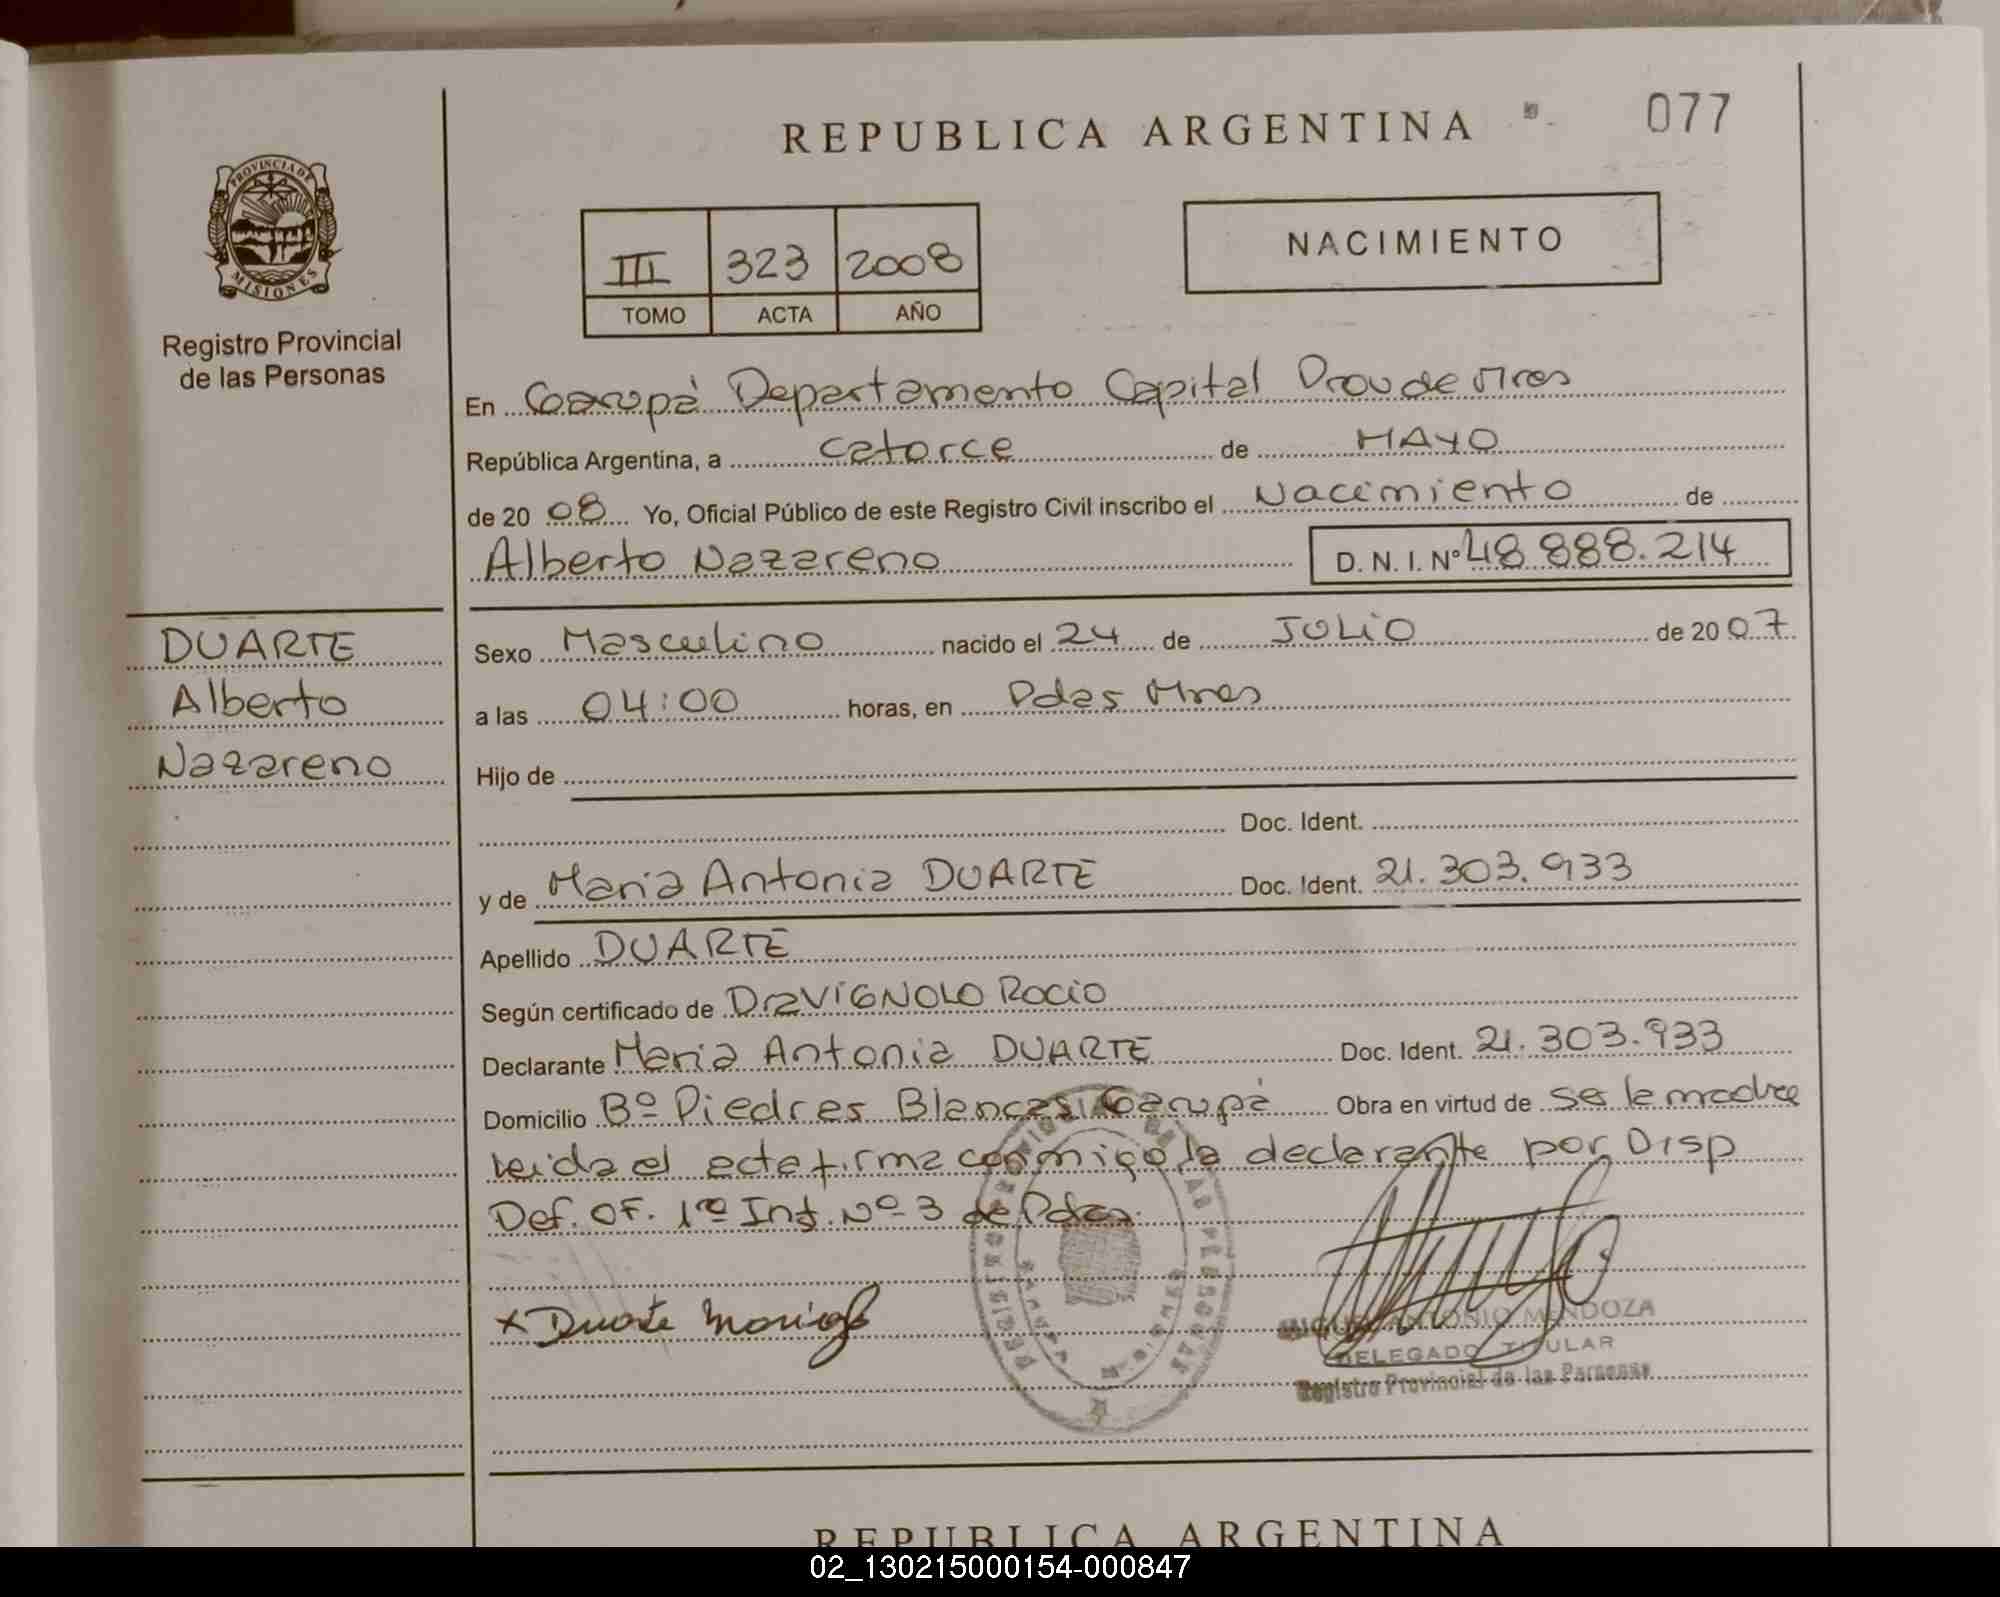 REPUBLICA ARGENTINA
077
PROVINCIA DE MISIONES
Registro Provincial
de las Personas
III 323 2008
TOMO ACTA AÑO
NACIMIENTO
En Garupá Departamento Capital Prov de Mnes
República Argentina, a catorce de MAYO
de 20 08 Yo, Oficial Público de este Registro Civil inscribo el Nacimiento de
Alberto Nazareno D.N.I. Nº 48.888.214
DUARTE
Alberto
Nazareno
Sexo Masculino nacido el 24 de JULIO de 20 07
a las 04:00 horas, en Pdas Mnes
Hijo de
Doc. Ident.
y de Maria Antonia DUARTE Doc. Ident. 21.303.933
Apellido DUARTE
Según certificado de Dra VIGNOLO ROCIO
Declarante Maria Antonia DUARTE Doc. Ident. 21.303.933
Domicilio Bº Piedras Blancas Garupá Obra en virtud de ser la madre
leida el acta firma conmigo la declarante por Disp
Def. OF. 1º Inst. Nº 3 de Pdas.
x Duarte Maria
MIGUEL ANTONIO MENDOZA
DELEGADO TITULAR
Registro Provincial de las Personas
REGISTRO PROVINCIAL DE LAS PERSONAS
REPUBLICA ARGENTINA
02_130215000154-000847